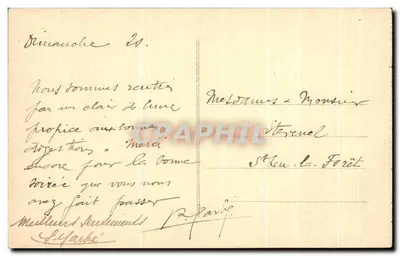 Dimanche 20.
Nous sommes rentrés
par un clair de lune
propice aux bonnes
digestions. Merci
encore pour la bonne
soirée que vous nous
avez fait passer
Meilleurs sentiments
Mesdames & Monsieur
St Leu-la-Forêt
CARTHAPHIL